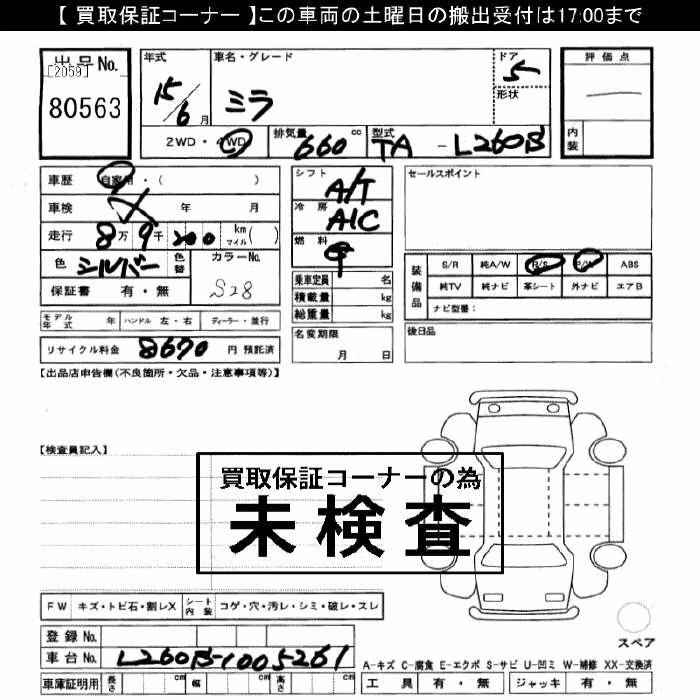 【 買取保証コーナー 】この車両の土曜日の搬出受付は17:00まで
出品No.
[2059]
80563
年式
15/6 月
車名・グレード
ミラ
ドア
5
形状
評価点
内装
2WD・4WD
排気量 660 cc
型式 TA - L260B
車歴 自家用・( )
車検 年 月
走行 8万 9千 200 km マイル( )
色 シルバー 色替
カラーNo.
S28
保証書 有・無
シフト
A/T
冷房
A/C
燃料
乗車定員 名
積載量 kg
総重量 kg
セールスポイント
装備品
S/R 純A/W R/S P/W ABS
純TV 純ナビ 革シート 外ナビ エアB
ナビ型番:
モデル年式 年 ハンドル 左・右 ディーラー・並行
リサイクル料金 8670 円 預託済
名変期限
月 日
後日品
【出品店申告欄(不良箇所・欠品・注意事項等)】
【検査員記入】
買取保証コーナーの為
未検査
FW キズ・トビ石・割レX シート内装 コゲ・穴・汚レ・シミ・破レ・スレ
スペア
登録No.
車台No. L260B-1005261
車庫証明用 長さ cm 幅 cm 高さ cm
A-キズ C-腐食 E-エクボ S-サビ U-凹ミ W-補修 XX-交換済
工具 有・無 ジャッキ 有・無